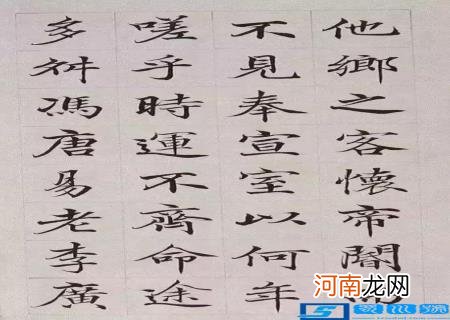 他鄉之客懷帝閽
不見奉宣室以何年
嗟乎時運不齊命途
多舛馮唐易老李廣
河南龙网